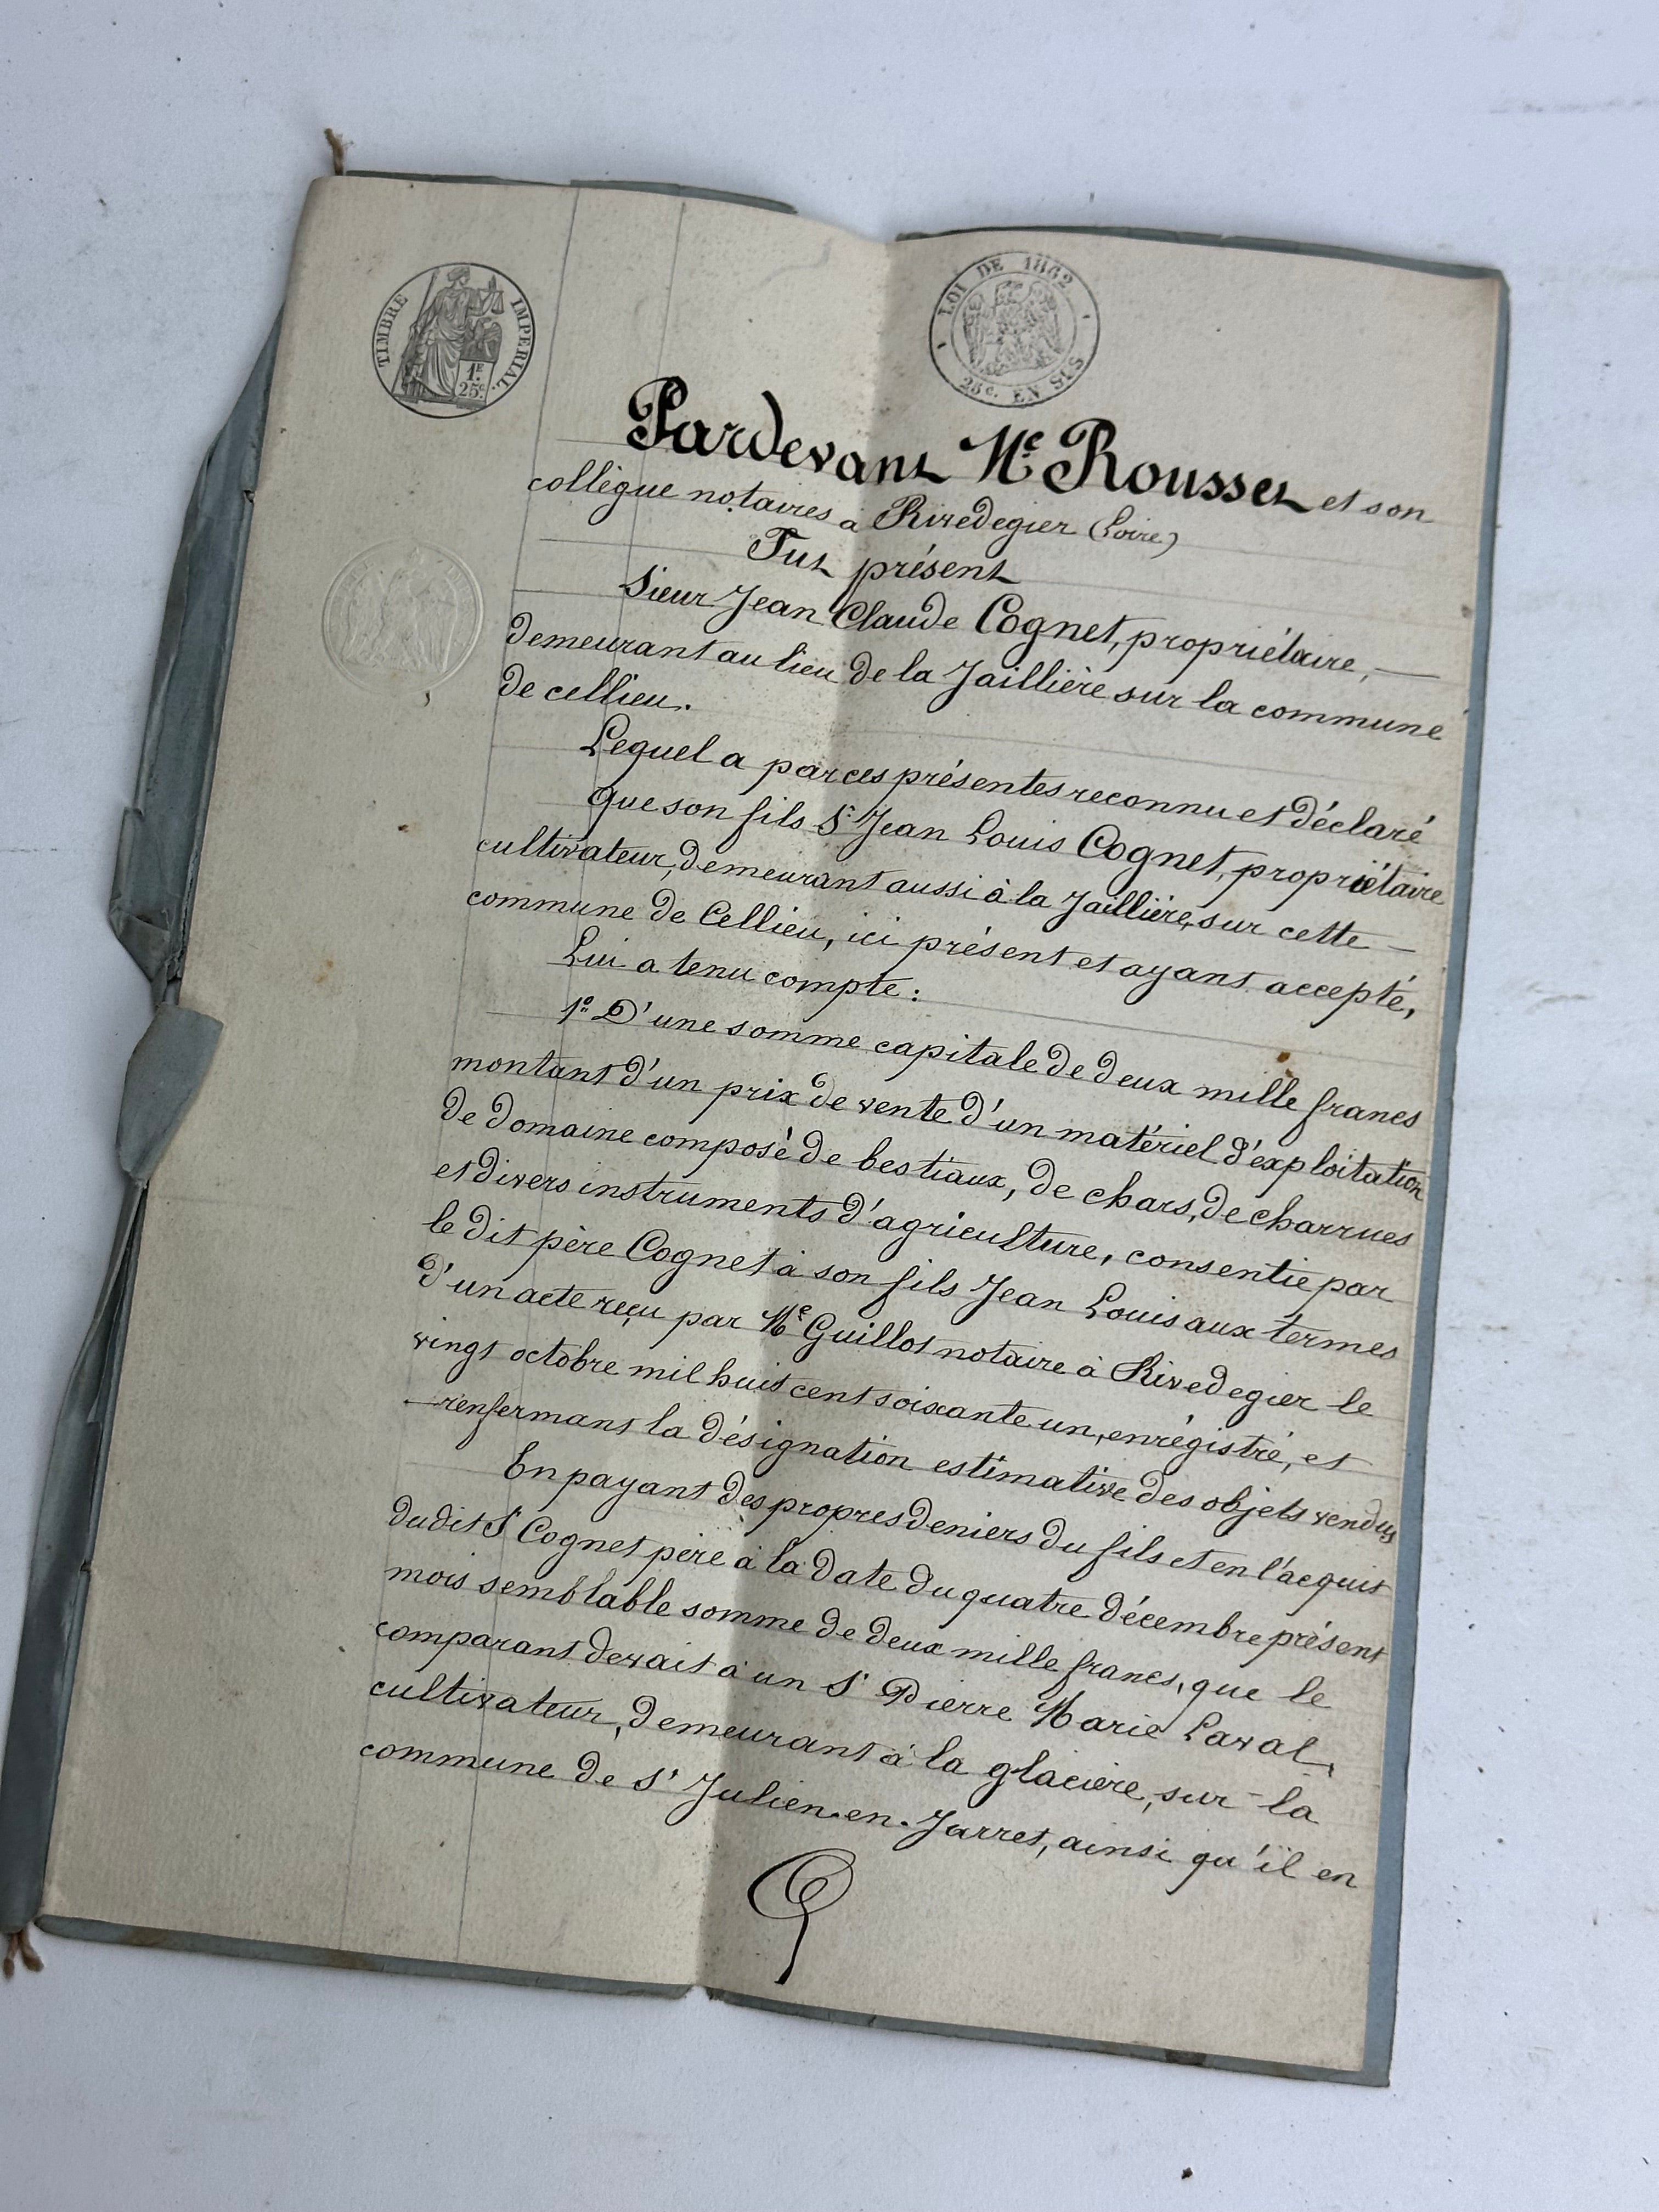 TIMBRE IMPERIAL.
1F.
25c.
LOI DE 1862
25c. EN SUS
Pardevant Me Rousset et son
collègue notaires à Rivedegier (Loire)
Fut présent
Sieur Jean Claude Cognet, propriétaire, —
demeurant au lieu de la Jaillière sur la commune
de cellieu.
Lequel a par ces présentes reconnu et déclaré
que son fils Sr Jean Louis Cognet, propriétaire
cultivateur, demeurant aussi à la Jaillière, sur cette —
commune de Cellieu, ici présent et ayant accepté,
Lui a tenu compte :
1o D'une somme capitale de deux mille francs
montant d'un prix de vente d'un matériel d'exploitation
de domaine composé de bestiaux, de chars, de charrues
et divers instruments d'agriculture, consentie par
le dit père Cognet à son fils Jean Louis aux termes
d'un acte reçu par Me Guillot notaire à Rivedegier le
vingt octobre mil huit cent soixante un, enrégistré, et
— renfermant la désignation estimative des objets vendus
En payant des propres deniers du fils et en l'acquit
dudit Sr Cognet père à la date du quatre décembre présent
mois semblable somme de deux mille francs, que le
comparant devait à un Sr Pierre Marie Laval,
cultivateur, demeurant à la glacière, sur la
commune de St Julien-en-Jarret, ainsi qu'il en